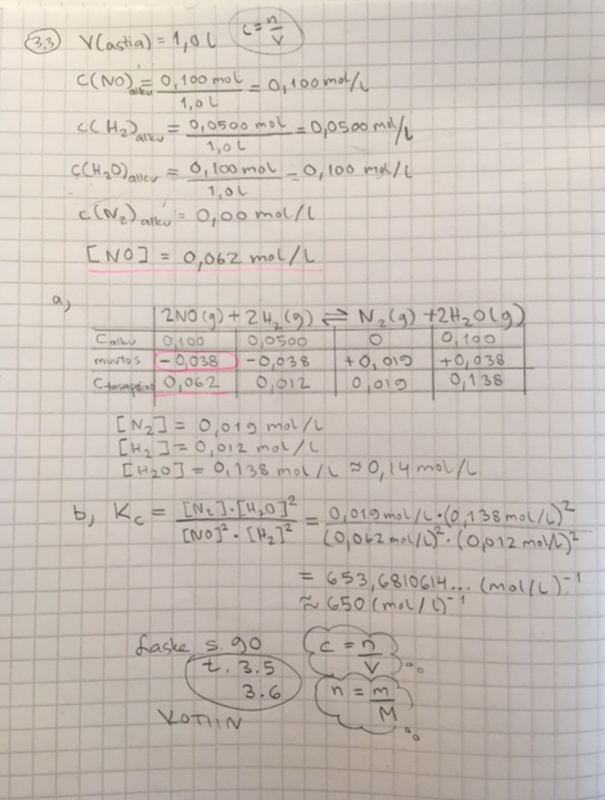 3.3) V(astia) = 1,0 L   c = n/V
c(NO)alku = 0,100 mol / 1,0 L = 0,100 mol/L
c(H₂)alku = 0,0500 mol / 1,0 L = 0,0500 mol/L
c(H₂O)alku = 0,100 mol / 1,0 L = 0,100 mol/L
c(N₂)alku = 0,00 mol/L
[NO] = 0,062 mol/L
a)
2NO(g) + 2H₂(g) ⇌ N₂(g) + 2H₂O(g)
Calku 0,100 0,0500 0 0,100
muutos -0,038 -0,038 +0,019 +0,038
Ctasapaino 0,062 0,012 0,019 0,138
[N₂] = 0,019 mol/L
[H₂] = 0,012 mol/L
[H2O] = 0,138 mol/L ≈ 0,14 mol/L
b) Kc = [N₂]·[H₂O]² / [NO]²·[H₂]² = 0,019 mol/L·(0,138 mol/L)² / (0,062 mol/L)²·(0,012 mol/L)²
= 653,6810614... (mol/L)⁻¹
≈ 650 (mol/L)⁻¹
Laske s. 90   c = n/V
t. 3.5
3.6   n = m/M
KOTIIN